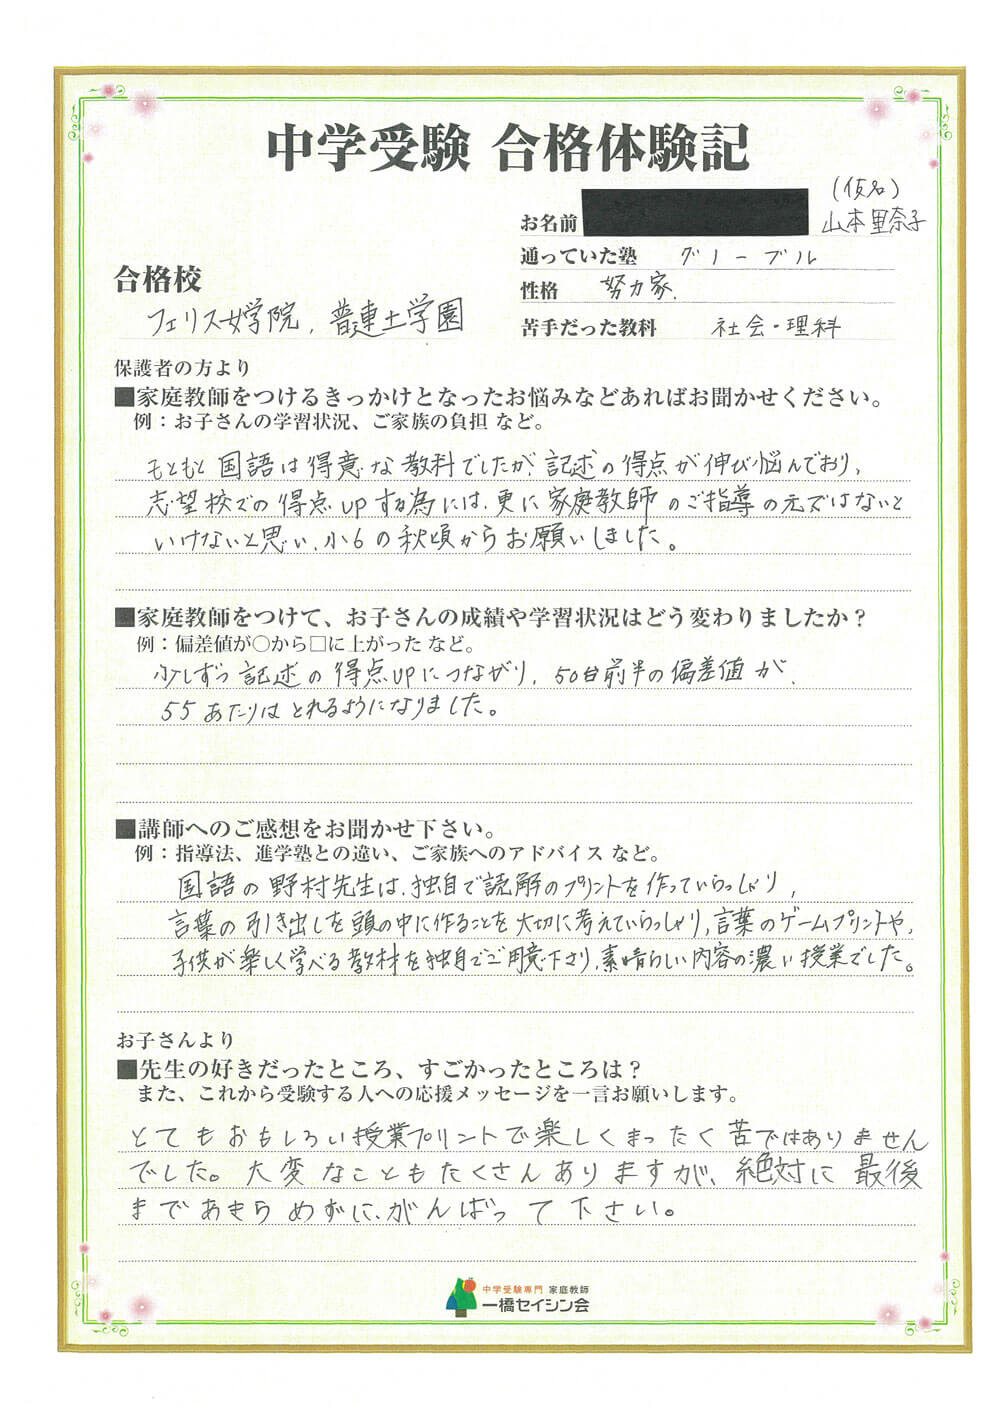 中学受験 合格体験記
(仮名)
お名前 山本里奈子
通っていた塾 グノーブル
性格 努力家.
苦手だった教科 社会・理科
合格校
フェリス女学院, 普連土学園
保護者の方より
■家庭教師をつけるきっかけとなったお悩みなどあればお聞かせください。
例：お子さんの学習状況、ご家族の負担 など。
もともと国語は得意な教科でしたが、記述の得点が伸び悩んでおり、
志望校での得点UPする為には、更に家庭教師のご指導の元ではないと
いけないと思い、小6の秋頃からお願いしました。
■家庭教師をつけて、お子さんの成績や学習状況はどう変わりましたか？
例：偏差値が○から□に上がった など。
少しずつ記述の得点UPにつながり、50台前半の偏差値が、
55あたりはとれるようになりました。
■講師へのご感想をお聞かせ下さい。
例：指導法、進学塾との違い、ご家族へのアドバイス など。
国語の野村先生は、独自で読解のプリントを作っていらっしゃり、
言葉の引き出しを頭の中に作ることを大切に考えていらっしゃり、言葉のゲームプリントや、
子供が楽しく学べる教材を独自でご用意下さり、素晴らしい内容の濃い授業でした。
お子さんより
■先生の好きだったところ、すごかったところは？
また、これから受験する人への応援メッセージを一言お願いします。
とてもおもしろい授業プリントで楽しくまったく苦ではありません
でした。大変なこともたくさんありますが、絶対に最後
まであきらめずに、がんばって下さい。
中学受験専門 家庭教師
一橋セイシン会